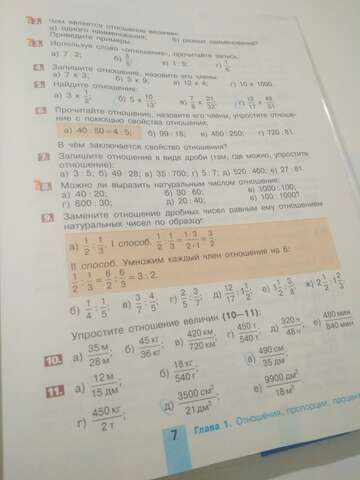 2. Чем является отношение величин:
а) одного наименования; б) разных наименований?
Приведите примеры.
3. Используя слово «отношение», прочитайте запись:
а) 7 : 2; б) 5/8; в) 1 : 5; г) 1/6.
4. Запишите отношение, назовите его члены:
а) 7 к 3; б) 5 к 9; в) 12 к 4; г) 10 к 1000.
5. Найдите отношение:
а) 3 к 1/2; б) 5 к 10/13; в) 7/8 к 21/32; г) 16/17 к 48/51.
6. Прочитайте отношение, назовите его члены, упростите отношение с помощью свойства отношения:
а) 40 : 50 = 4 : 5; б) 99 : 18; в) 450 : 250; г) 720 : 81.
В чём заключается свойство отношения?
7. Запишите отношение в виде дроби (там, где можно, упростите отношение):
а) 3 : 5; б) 49 : 28; в) 35 : 700; г) 5 : 7; д) 520 : 460; е) 27 : 81.
8. Можно ли выразить натуральным числом отношение:
а) 40 : 20; б) 30 : 60; в) 1000 : 100;
г) 600 : 30; д) 20 : 40; е) 100 : 1000?
9. Замените отношение дробных чисел равным ему отношением натуральных чисел по образцу:
а) 1/2 : 1/3. I способ. 1/2 : 1/3 = 1·3/2·1 = 3/2.
II способ. Умножим каждый член отношения на 6:
1/2 : 1/3 = 6/2 : 6/3 = 3 : 2.
б) 1/4 : 1/5; в) 3/7 : 4/5; г) 2/5 : 3/7; д) 12/17 : 1 1/2; е) 1 1/2 : 3/8; ж) 2 1/2 : 1 2/3.
Упростите отношение величин (10—11):
10. а) 35 м/28 м; б) 45 кг/36 кг; в) 420 км/720 км; г) 450 т/540 т; д) 320 ч/48 ч; е) 480 мин/840 мин.
11. а) 12 м/15 дм; б) 18 кг/540 г; в) 490 см/35 дм;
г) 450 кг/2 т; д) 3500 см²/21 дм²; е) 9900 дм²/18 м².
7 Глава 1. Отношения, пропорции,